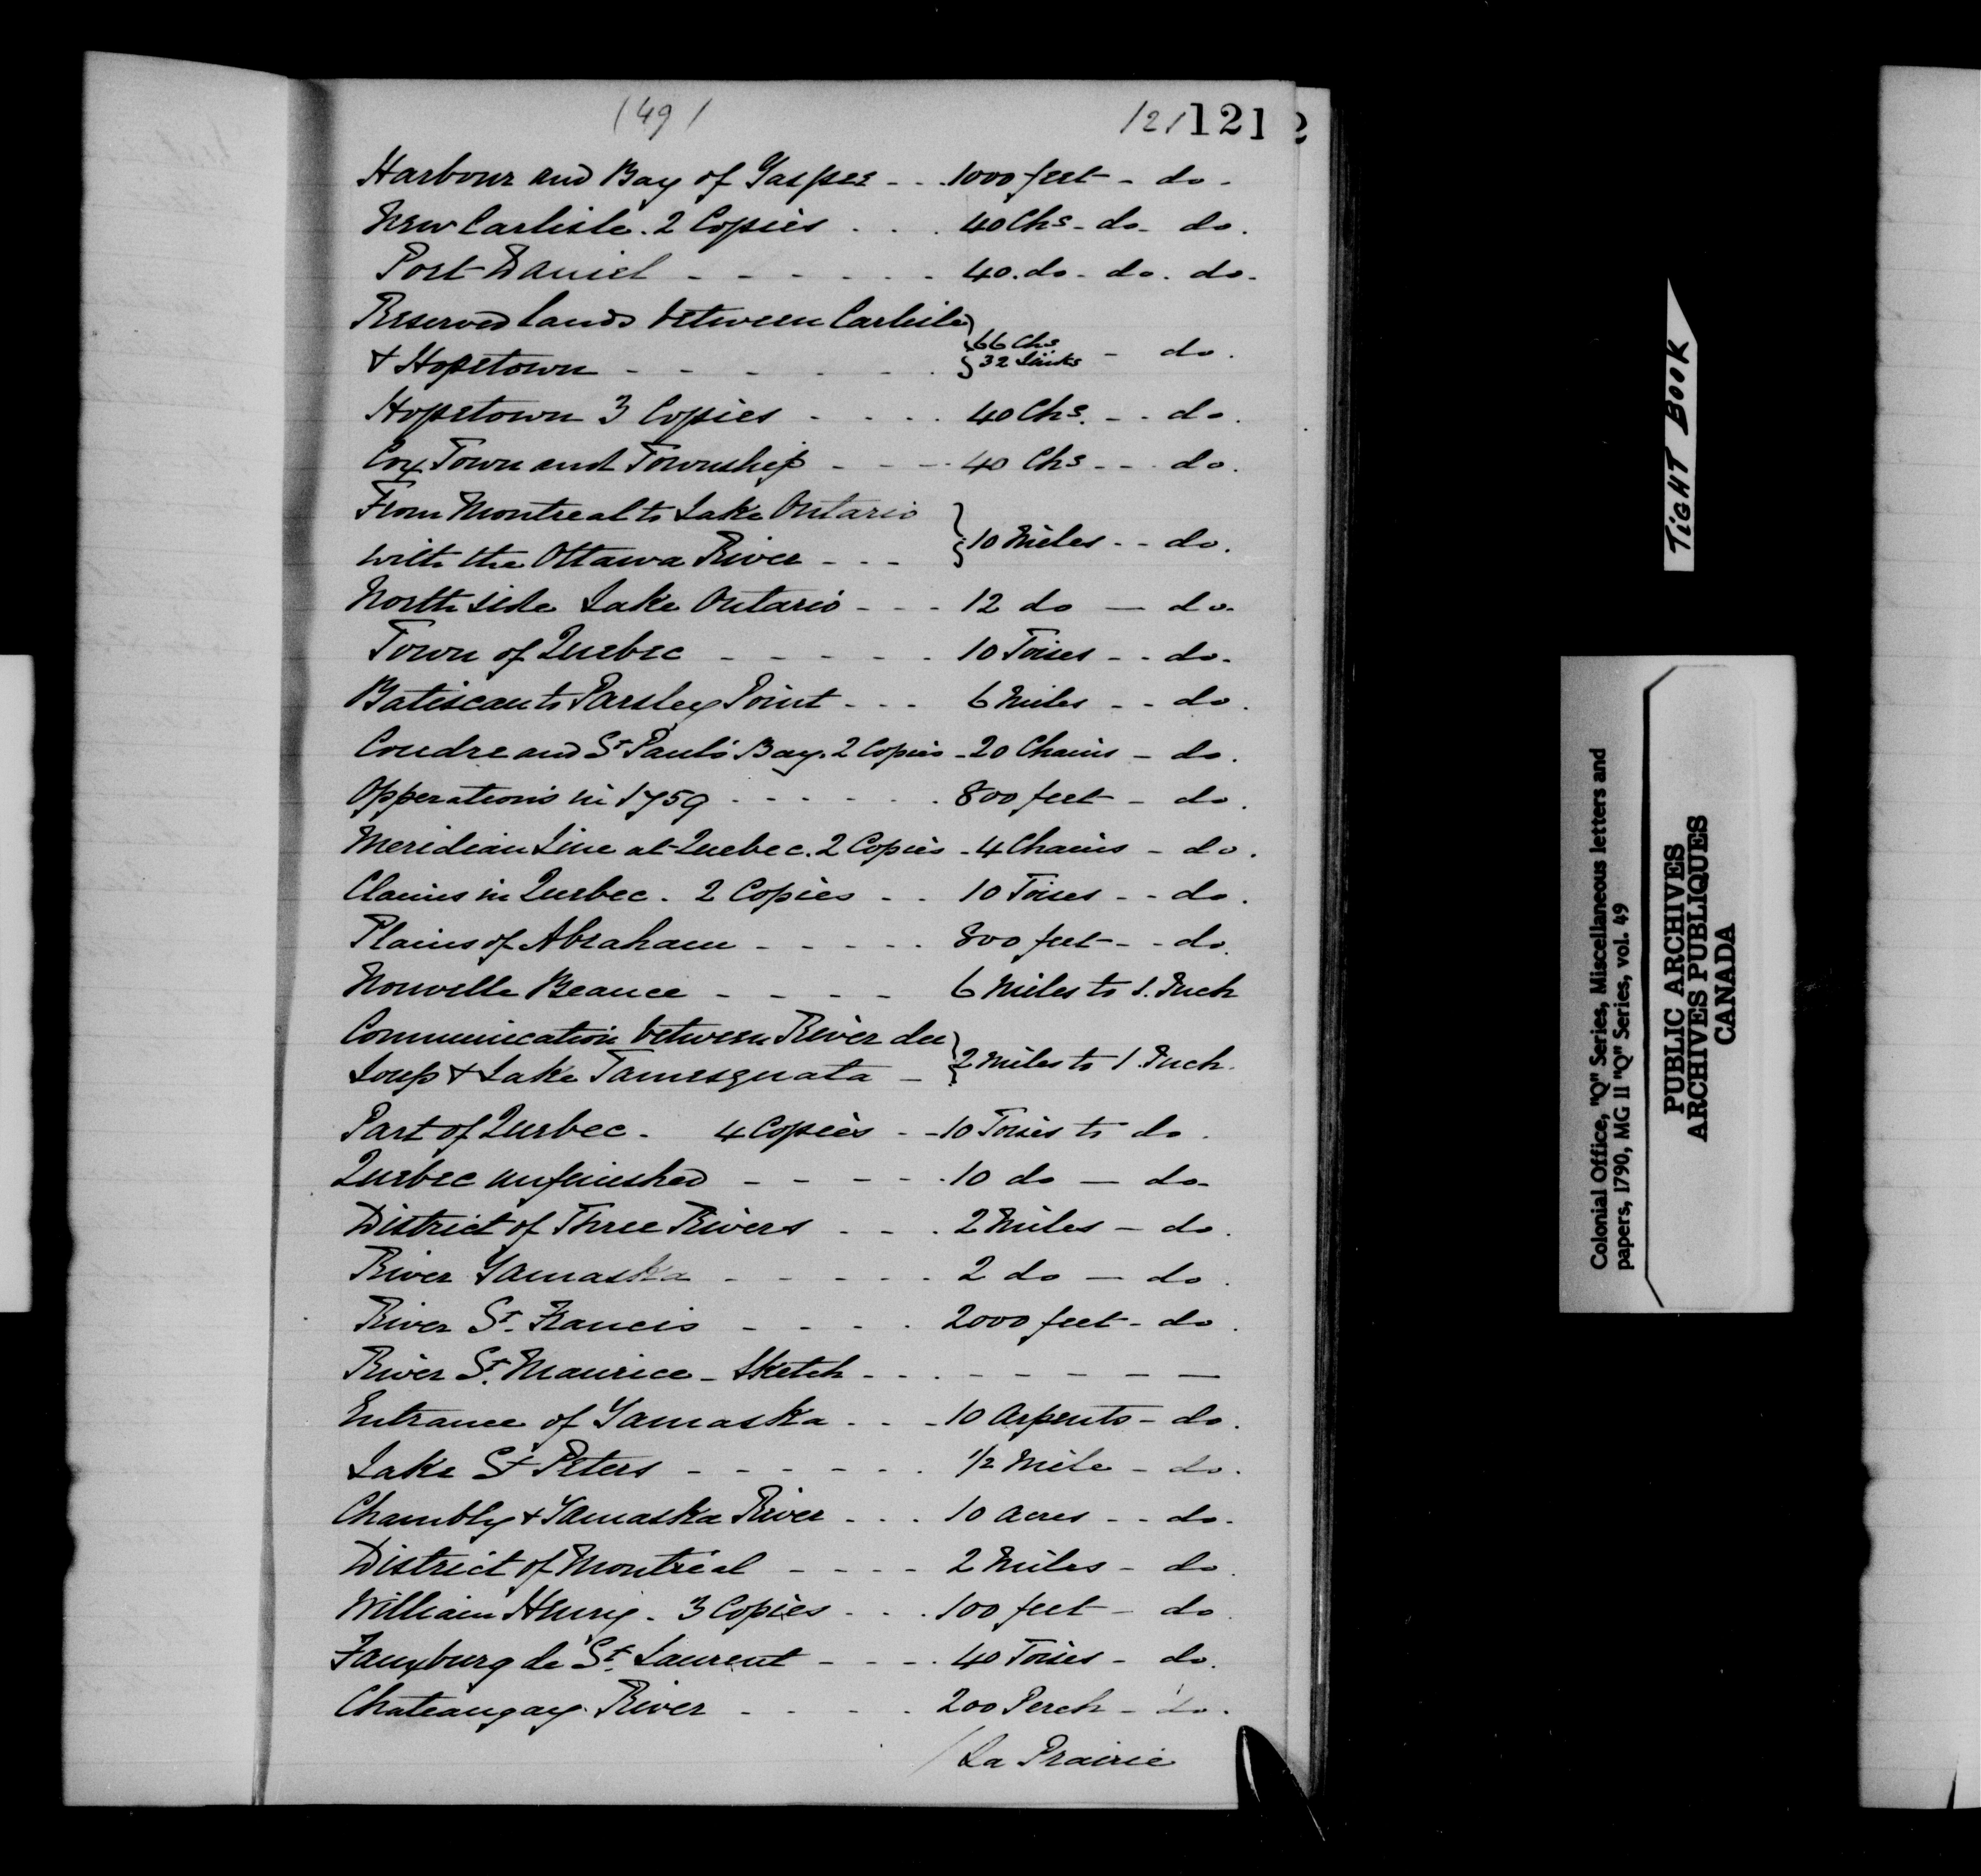 (49) 121 121 2
Harbour and Bay of Gaspee - - 1000 feet - do -
New Carlisle. 2 Copies - - - 40 Chs - do - do.
Port Daniel - - - - - - 40. do - do. do -
Reserved lands between Carlisle } 66 Chs
& Hopetown - - - - - - } 32 Links - do.
Hopetown 3 Copies - - - - 40 Chs. - - do.
Cox Town and Township - - - - 40 Chs - - do.
From Montreal to Lake Ontario
with the Ottawa River - - - } 10 Miles - - do.
North side Lake Ontario - - - 12 do — do -
Town of Quebec - - - - - 10 Toises - - do -
Batiscan to Parsley Point - - - 6 Miles - - do.
Coudre and St Paul's Bay. 2 Copies - 20 Chains - do.
Opperations in 1759 - - - - - 800 feet - do.
Meridian Line at Quebec. 2 Copies - 4 Chains - do.
Claims in Quebec. 2 Copies - - 10 Toises - - do.
Plains of Abraham - - - - - 800 feet - - do.
Nouvelle Beauce - - - - 6 Miles to 1. Inch
Communication between River du
Loup & Lake Tamesquata - } 2 Miles to 1. Inch.
Part of Quebec. 4 Copies - - 10 Toises to do.
Quebec unfinished - - - - - 10 do — do -
District of Three Rivers - - - 2 Miles - do.
River Yamaska - - - - - 2 do — do.
River St. Francis - - - - 2000 feet - do.
River St. Maurice - Sketch - - - - - - - -
Entrance of Yamaska - - - 10 Arpents - do.
Lake St Peters - - - - - - 1/2 Mile - do.
Chambly & Yamaska River - - - 10 acres - - do -
District of Montreal - - - - 2 Miles - do.
William Henry. 3 Copies - - - 100 feet - do.
Fauxburg de St. Laurent - - - - 40 Toises - do.
Chateaugay River - - - - 200 Perch - do.
/ La Prairie
TIGHT BOOK
Colonial Office, "Q" Series, Miscellaneous letters and
papers, 1790, MG 11 "Q" Series, vol. 49
PUBLIC ARCHIVES
ARCHIVES PUBLIQUES
CANADA